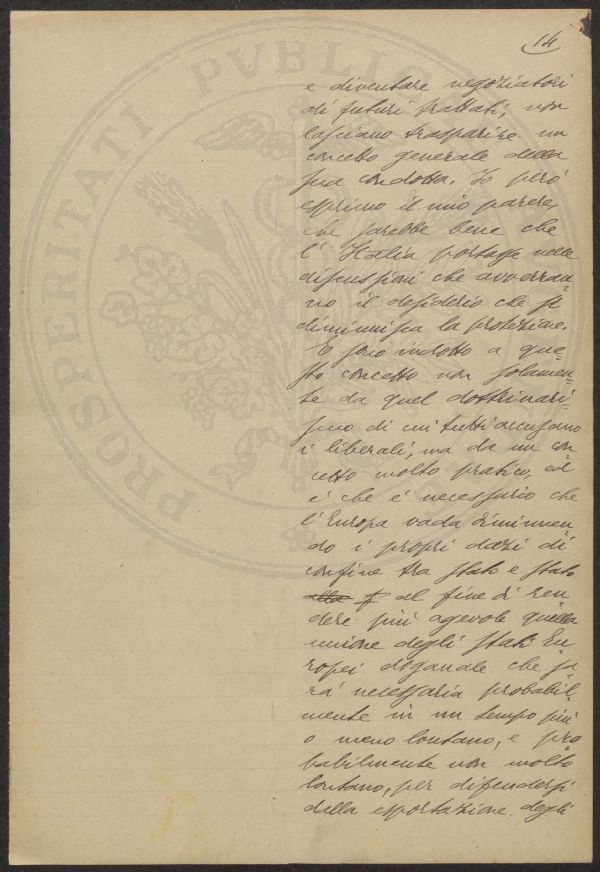 14
PROSPERITATI PVBLICAE
e diventare negoziatori
di futuri trattati, non
lasciano trasparire un
concetto generale della
sua condotta. Io però
esprimo il mio parere
che sarebbe bene che
l'Italia portasse nelle
discussioni che avverran=
no il desiderio che si
diminuisca la protezione.
E sono indotto a que=
sto concetto non solamen=
te da quel dottrinari=
smo di cui tutti accusano
i liberali, ma da un con
cetto molto pratico, ed
è che è necessario che
l'Europa vada diminuen
do i propri dazi di
confine tra stato e stato
al fine di ren=
dere più agevole quella
unione degli stati Eu=
ropei doganale che sa=
rà necessaria probabil=
mente in un tempo più
o meno lontano, e pro
babilmente non molto
lontano, per difendersi
della esportazione degli